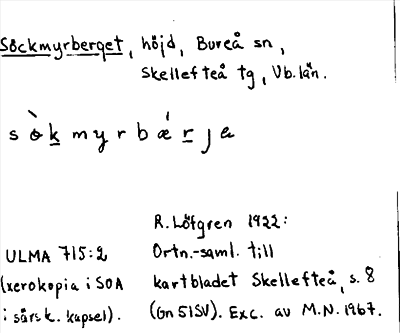 Söckmyrberget, höjd, Bureå sn,
Skellefteå tg, Vb. län.
sòkmyrbǽrja
R. Löfgren 1922:
ULMA 715:2 Ortn.-saml. till
(xerokopia i SOA kartbladet Skellefteå, s. 8
i särsk. kapsel). (Gn 51SV). Exc. av M.N. 1967.